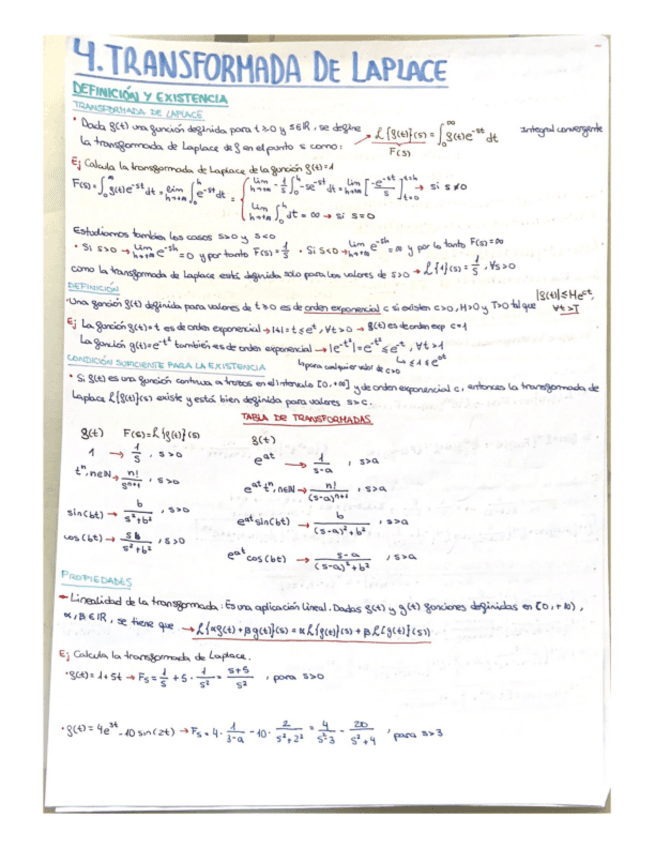 4. TRANSFORMADA DE LAPLACE
DEFINICIÓN Y EXISTENCIA
TRANSFORMADA DE LAPLACE
• Dada f(t) una función definida para t≥0 y s∈ℝ, se define
la transformada de Laplace de f en el punto s como: → ℒ{f(t)}(s) = ∫₀^∞ f(t)e^-st dt Integral convergente
F(s)
Ej Calcula la transformada de Laplace de la función f(t)=1
F(s) = ∫₀^∞ f(t)e^-st dt = lim h→+∞ ∫₀^h e^-st dt = { lim h→+∞ -1/s ∫₀^h -se^-st dt = lim h→+∞ [-e^-st/s] t=h t=0 → si s≠0
lim h→+∞ ∫₀^h dt = ∞ → si s=0
Estudiamos tambien los casos s>0 y s<0
• Si s>0 → lim h→+∞ e^-sh = 0 y por tanto F(s) = 1/s • Si s<0 → lim h→+∞ e^-sh = ∞ y por lo tanto F(s) = ∞
como la transformada de Laplace está definida solo para los valores de s>0 → ℒ{1}(s) = 1/s, ∀s>0
DEFINICIÓN
• Una función f(t) definida para valores de t≥0 es de orden exponencial c si existen c>0, M>0 y T>0 tal que |f(t)| ≤ Me^ct, ∀t>T
Ej La función f(t)=t es de orden exponencial → |t| = t ≤ e^t, ∀t>0 → f(t) es de orden exp c=1
La función f(t)=e^-t² también es de orden exponencial → |e^-t²| = e^-t² ≤ e^-t, ∀t>1
↳ para cualquier valor de c>0 ↳ ≤ 1 ≤ e^ct
CONDICIÓN SUFICIENTE PARA LA EXISTENCIA
• Si f(t) es una función continua a trozos en el intervalo [0,+∞] y de orden exponencial c, entonces la transformada de
Laplace ℒ{f(t)}(s) existe y está bien definida para valores s>c.
TABLA DE TRANSFORMADAS
f(t) F(s)=ℒ{f(t)}(s) f(t)
1 → 1/s, s>0 e^at → 1/(s-a), s>a
t^n, n∈N → n!/s^(n+1), s>0 e^at t^n, n∈N → n!/(s-a)^(n+1), s>a
sin(bt) → b/(s²+b²), s>0 e^at sin(bt) → b/((s-a)²+b²), s>a
cos(bt) → sb/(s²+b²), s>0 e^at cos(bt) → (s-a)/((s-a)²+b²), s>a
PROPIEDADES
→ Linealidad de la transformada: Es una aplicación lineal. Dadas f(t) y g(t) funciones definidas en [0,+∞),
α, β ∈ ℝ, se tiene que → ℒ{αf(t) + βg(t)}(s) = αℒ{f(t)}(s) + βℒ{g(t)}(s)
Ej Calcula la transformada de Laplace.
• f(t) = 1+5t → Fs = 1/s + 5 · 1/s² = (s+5)/s², para s>0
• f(t) = 4e^3t - 10 sin(2t) → Fs = 4 · 1/(3-a) - 10 · 2/(s²+2²) = 4/(s-3) - 20/(s²+4), para s>3